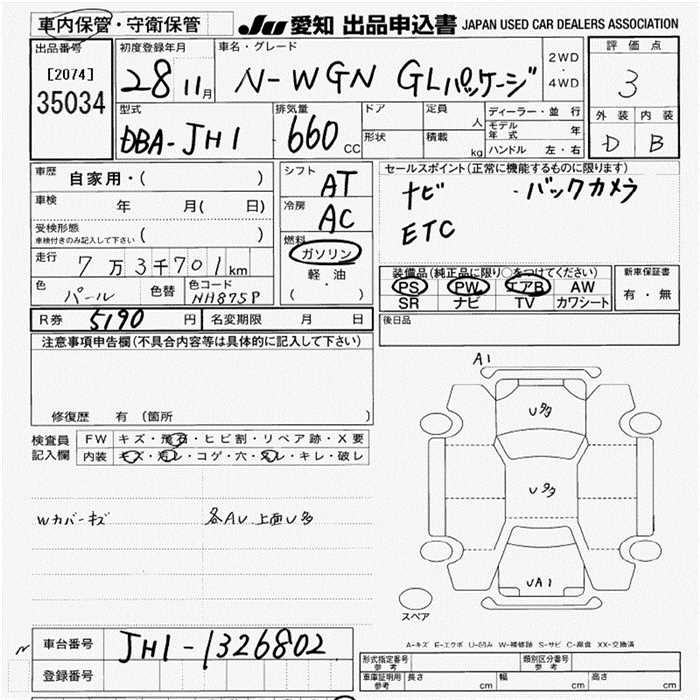 車内保管・守衛保管 JU 愛知 出品申込書 JAPAN USED CAR DEALERS ASSOCIATION
出品番号 [2074] 35034
初度登録年月 28 11月
車名・グレード N-WGN GLパッケージ
2WD・4WD
評価点 3
外装 D 内装 B
型式 DBA-JH1
排気量 660 CC
ドア 形状
定員 人 積載 kg
ディーラー・並行
モデル年式 年
ハンドル 左・右
車歴 自家用・( )
車検 年 月( 日)
受検形態 車検付きのみ記入して下さい ( )
走行 7万3千701km
色 パール 色替 色コード NH875P
シフト AT
冷房 AC
燃料 ガソリン 軽・油 ( ・ )
セールスポイント(正常に機能するものに限ります)
ナビ ・バックカメラ
ETC
装備品(純正品に限り○をつけてください)
PS PW エアB AW
SR ナビ TV カワシート
新車保証書 有・無
R券 5190 円 名変期限 月 日
後日品
注意事項申告欄(不具合内容等は具体的に記入して下さい)
修復歴 有 (箇所 )
検査員記入欄
FW キズ・飛石・ヒビ割・リペア跡・X要
内装 キズ・汚レ・コゲ・穴・スレ・キレ・破レ
Wカバーキズ 各AU 上面U多
A1
U多
U多
UA1
スペア
A-キズ E-エクボ U-凹み W-補修跡 S-サビ C-腐食 XX-交換済
車台番号 JH1-1326802
登録番号
形式指定番号 参考 類別区分番号 参考
車庫証明用 参考 長さ cm 幅 cm 高さ cm